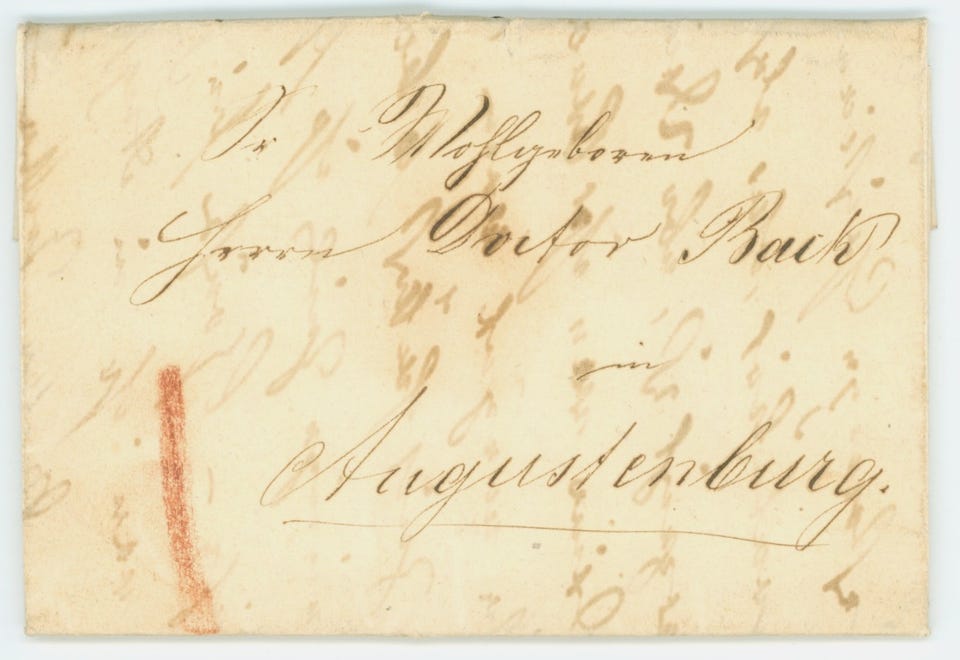 Sr Wohlgeboren
Herrn Doctor Back
in
Augustenburg.